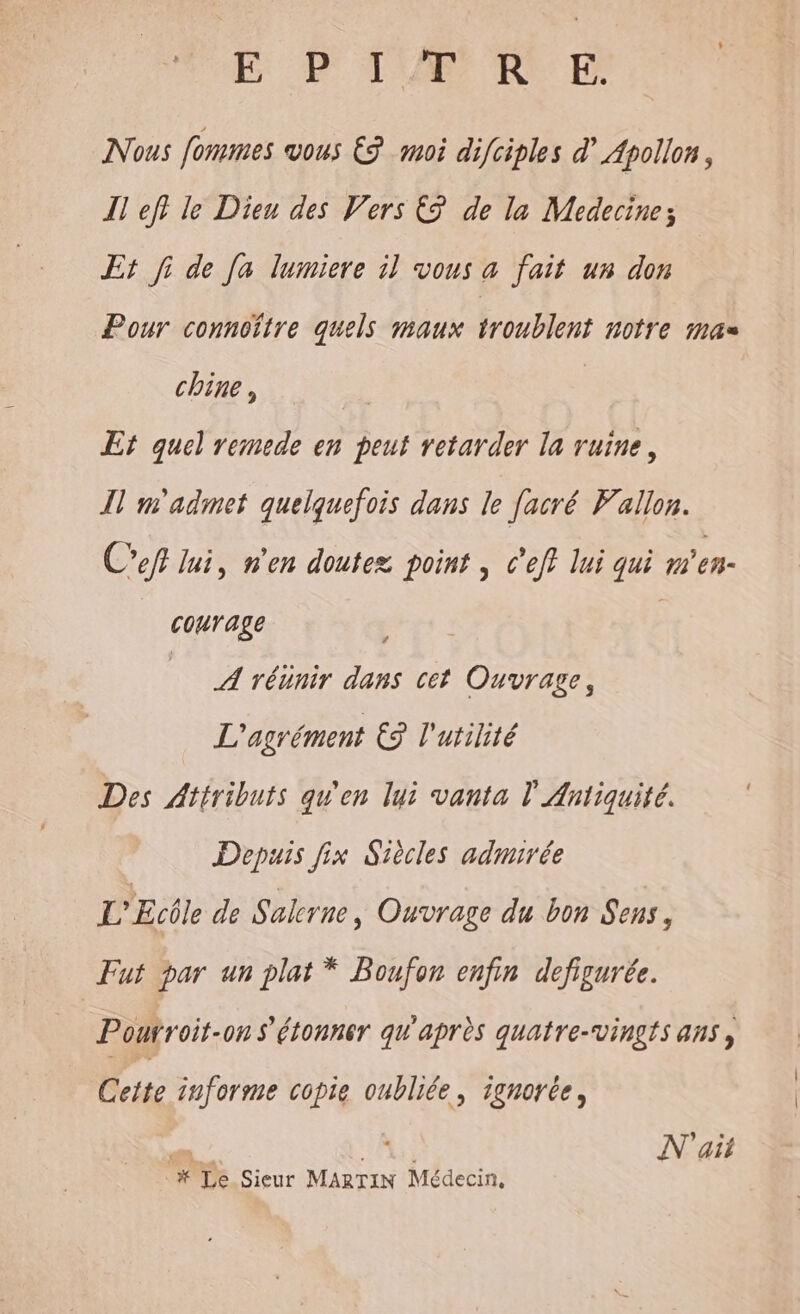 EPITRE.
Nous ſommes vous & moi diſciples d' Apollon,
Il eſt le Dieu des Vers & de la Medecine;
Et ſi de ſa lumiere il vous a fait un don
Pour connoître quels maux troublent notre ma-
chine,
Et quel remede en peut retarder la ruine,
Il m'admet quelquefois dans le ſacré Vallon.
C'eſt lui, n'en doutez point, c'eſt lui qui m'en-
courage
A réünir dans cet Ouvrage,
L'agrément & l'utilité
Des Attributs qu'en lui vanta l'Antiquité.
Depuis ſix Siècles admirée
L'Ecôle de Salerne, Ouvrage du bon Sens,
Fut par un plat * Boufon enfin defigurée.
Pourroit-on s'étonner qu'après quatre-vingts ans,
Cette informe copie oubliée, ignorée,
N'ait
* Le Sieur MARTIN Médecin,